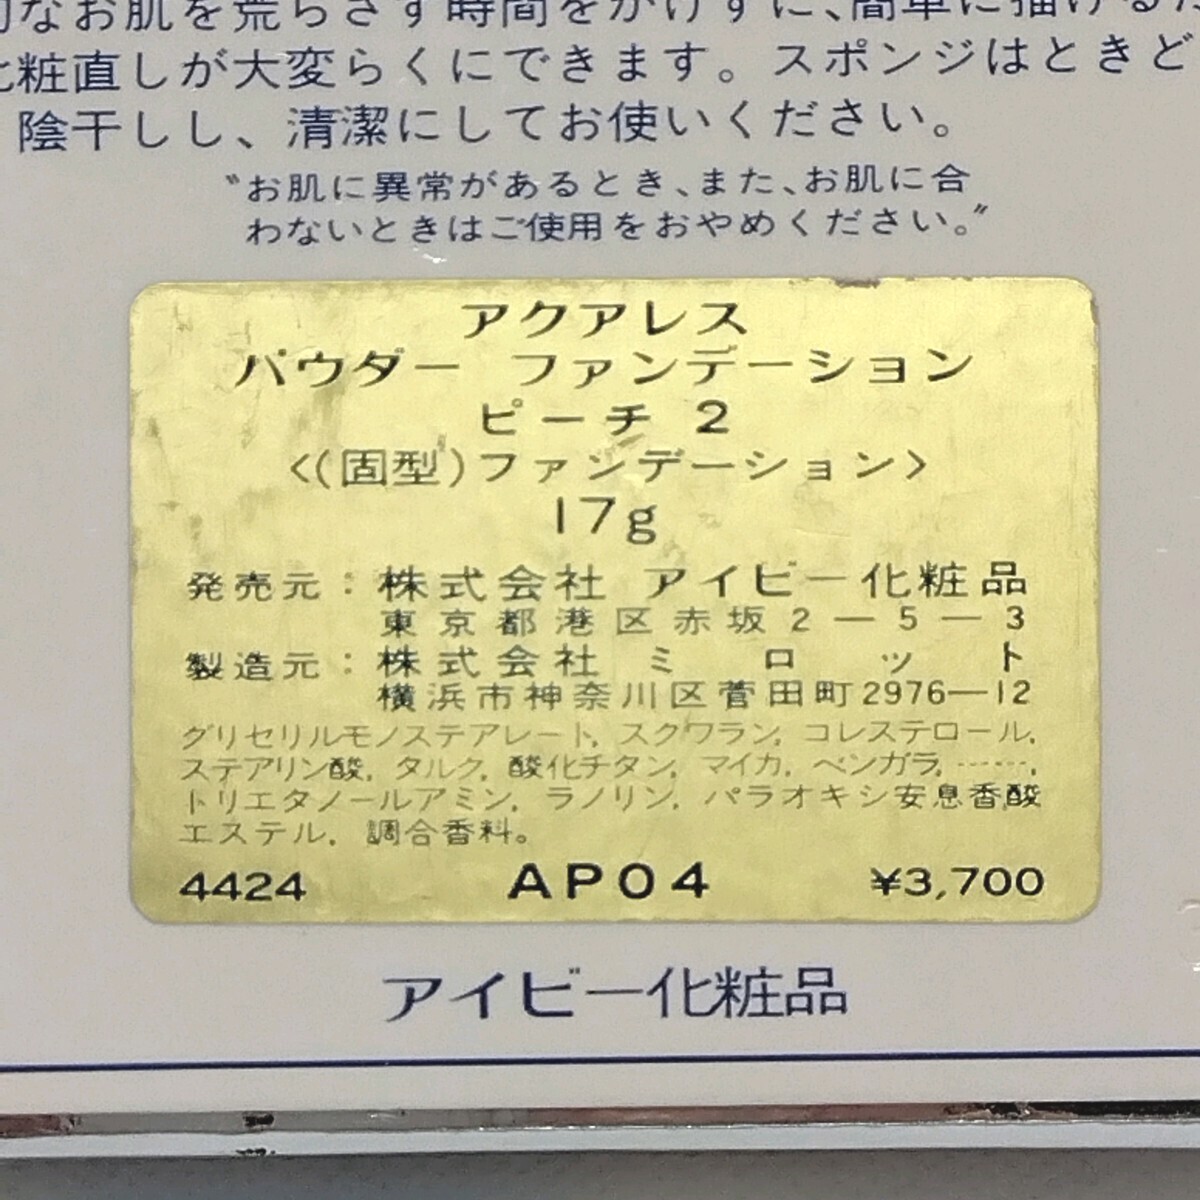 なお肌を荒らさず時間をかけずに、簡単に描けるた
化粧直しが大変らくにできます。スポンジはときど
陰干しし、清潔にしてお使いください。
〝お肌に異常があるとき、また、お肌に合
わないときはご使用をおやめください。〟
アクアレス
パウダー ファンデーション
ピーチ 2
<(固型)ファンデーション>
17g
発売元：株式会社 アイビー化粧品
東京都港区赤坂2－5－3
製造元：株式会社ミロット
横浜市神奈川区菅田町2976－12
グリセリルモノステアレート, スクワラン, コレステロール,
ステアリン酸, タルク, 酸化チタン, マイカ, ベンガラ, ……,
トリエタノールアミン, ラノリン, パラオキシ安息香酸
エステル, 調合香料。
4424 AP04 ¥3,700
アイビー化粧品